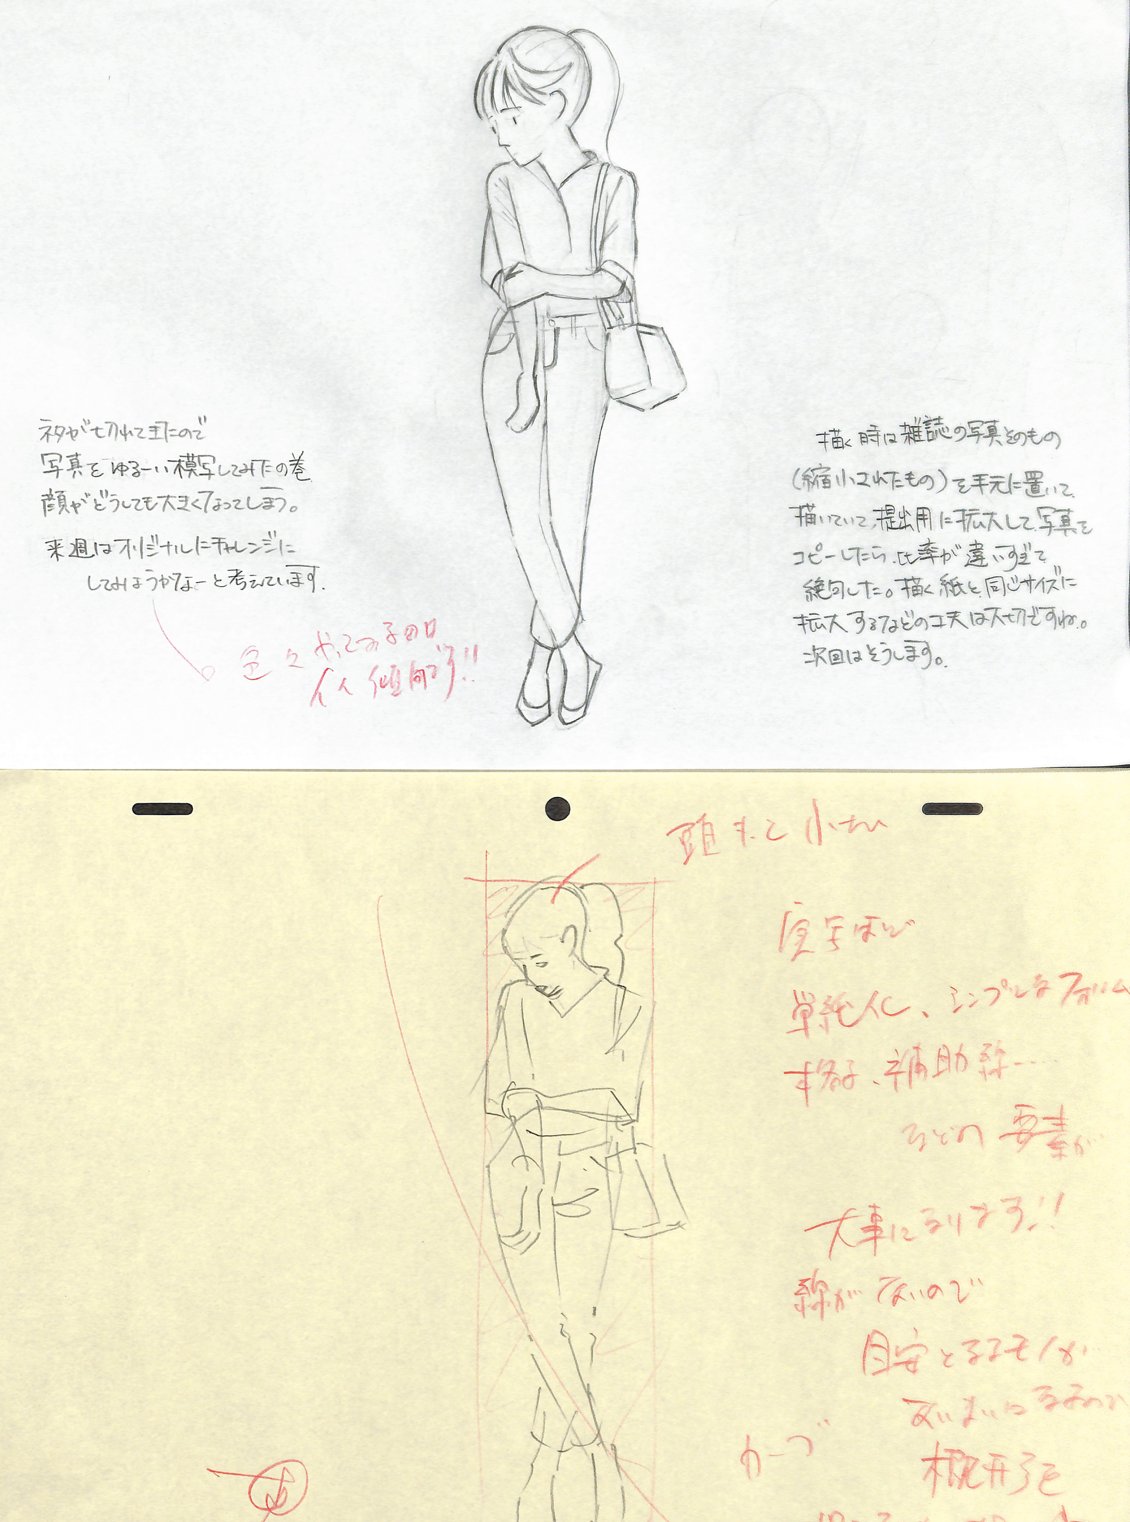 ネタが切れて来たので
写真をゆるーい模写してみたの巻。
顔がどうしても大きくなってしまう。
来週はオリジナルにチャレンジに
してみようかなーと考えています。
色々やってみるのは
イイ傾向です!!
描く時は雑誌の写真そのもの
(縮小されたもの)を手元に置いて、
描いていて、提出用に拡大して写真を
コピーしたら、比率が違いすぎて
絶句した。描く紙と同じサイズに
拡大するなどの工夫は大切ですね。
次回はそうします。
頭もっと小さい
写真ほど
単純化、シンプルなフォルム
格子、補助線……
などの要素が
大事になります!!
線がないので
目安となるモノが
あいまいになるので
カーブ
概形を